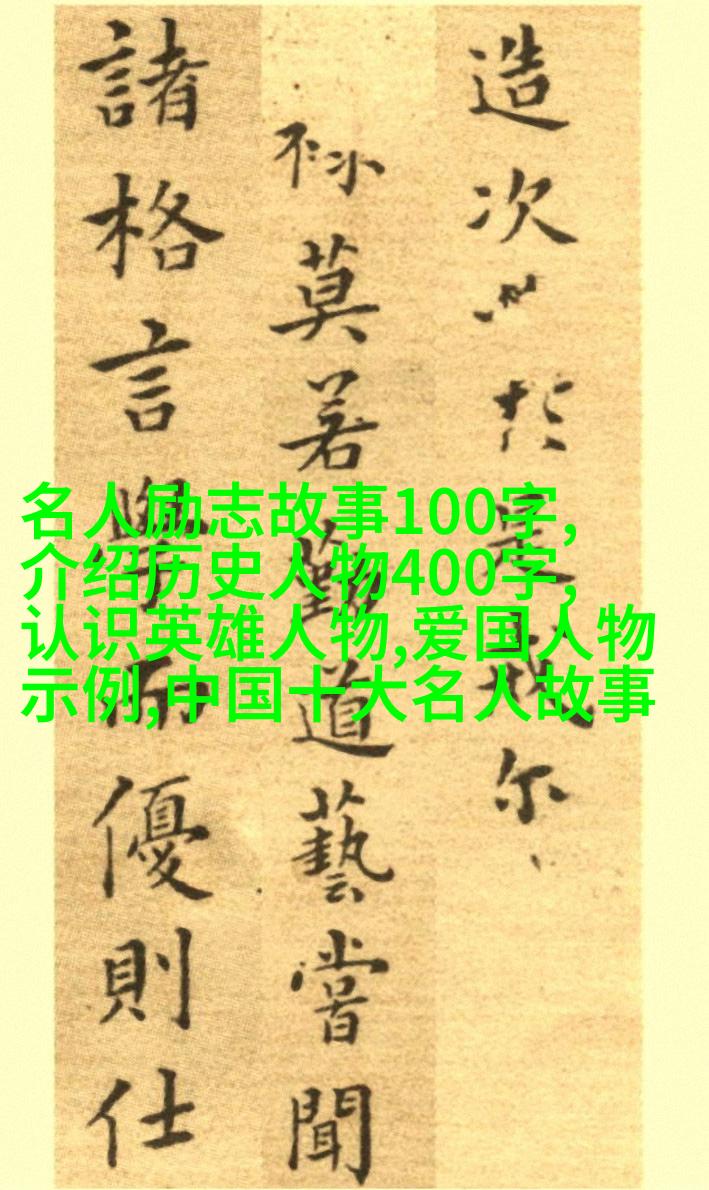 造次於是尔
不小莫若勤道藝嘗聞
諸格言學而優則仕
名人励志故事100字,
介绍历史人物400字,
认识英雄人物,爱国人物
示例,中国十大名人故事